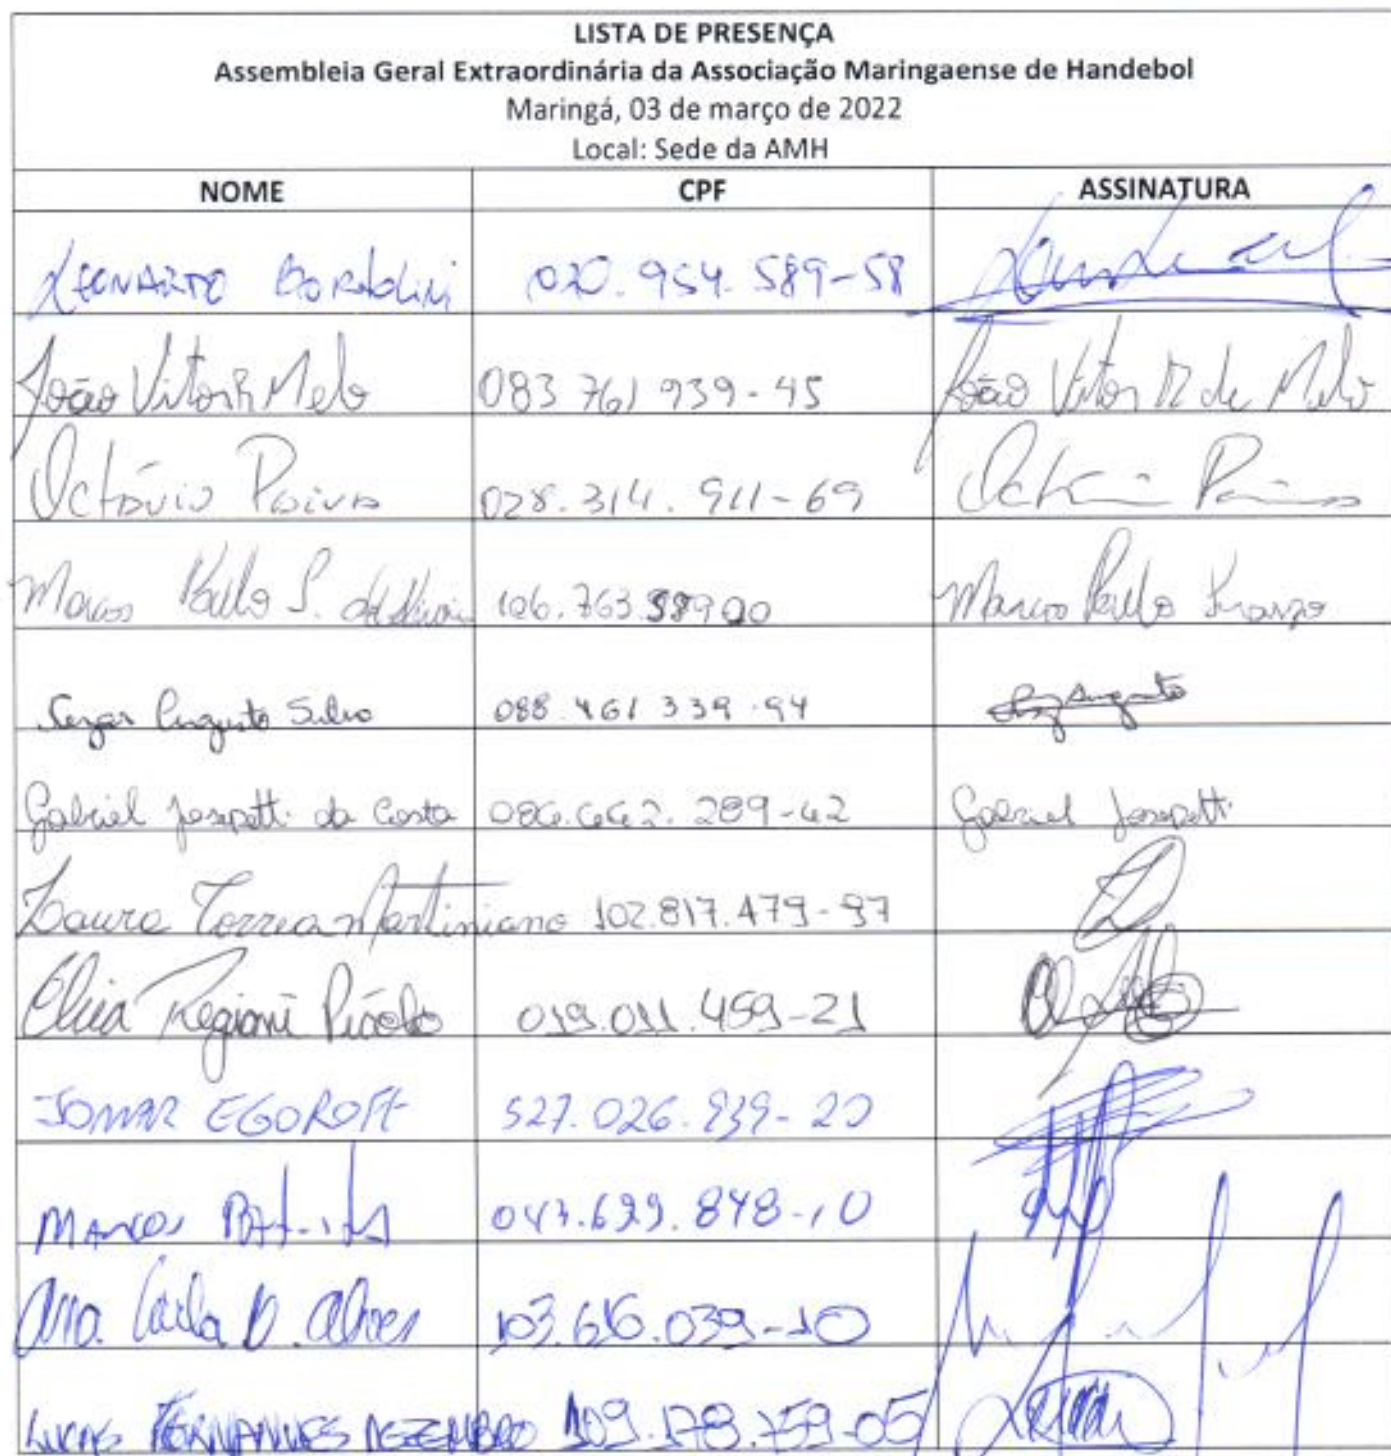 LISTA DE PRESENÇA
Assembleia Geral Extraordinária da Associação Maringaense de Handebol
Maringá, 03 de março de 2022
Local: Sede da AMH
NOME CPF ASSINATURA
LEONARDO BORTOLINI 020.954.589-58
João Vitor R Melo 083 761 939-45 João Vitor R de Melo
Octávio Paiva 028.314.911-69
Marcos Paulo S. 106.763 Marcos Paulo
Cezar Augusto Silva 088 461 339-94 Augusto
Gabriel Josepetti da Costa 086.662.289-42 Gabriel Josepetti
Laura Correa Martiniano 102.817.479-97
Regiani 019.011.459-21
JOMAR EGOROFF 527.026.939-20
MARCOS 043.699.848-10
Ana Carla D. Alves 103.616.039-10
LUCAS FERNANDES DEZEMBRO 109.178.759-05